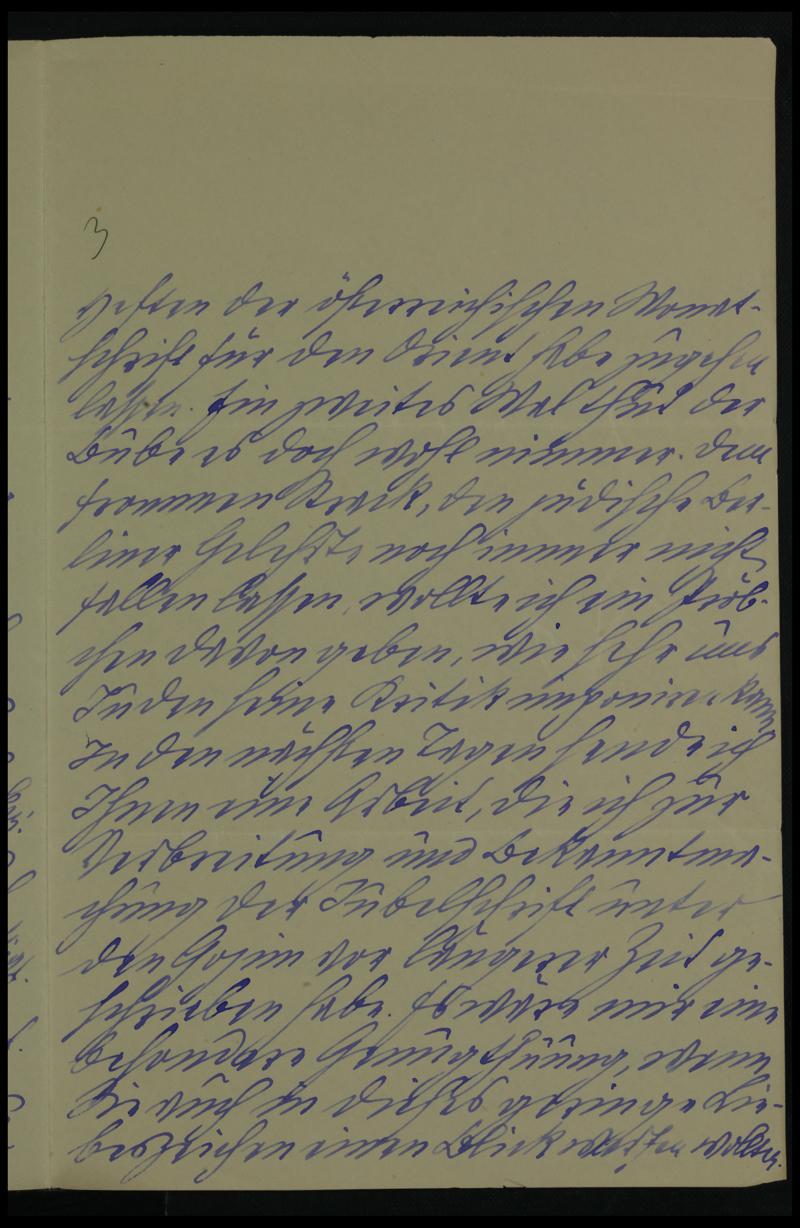 3
Heften der österreichischen Monat-
schrift für den Orient habe zugehen
lassen. Ein zweites Mal thut der
Bube es doch wohl nimmer. Dem
frommen Strack, den jüdische Ber-
liner Gelehrte noch immer nicht
fallen lassen, wollte ich ein Pröb-
chen davon geben, wie sehr uns
Juden seine Kritik imponiren kann.
In den nächsten Tagen sende ich
Ihnen eine Arbeit, die ich zur
Verbreitung und Bekanntma-
chung der Jubelschrift unter
den Gojim vor längerer Zeit ge-
schrieben habe. Es wäre mir eine
besondere Genugthuung, wenn
Sie auch in dieses geringe Lie-
beszeichen einen Blick werfen wollten.